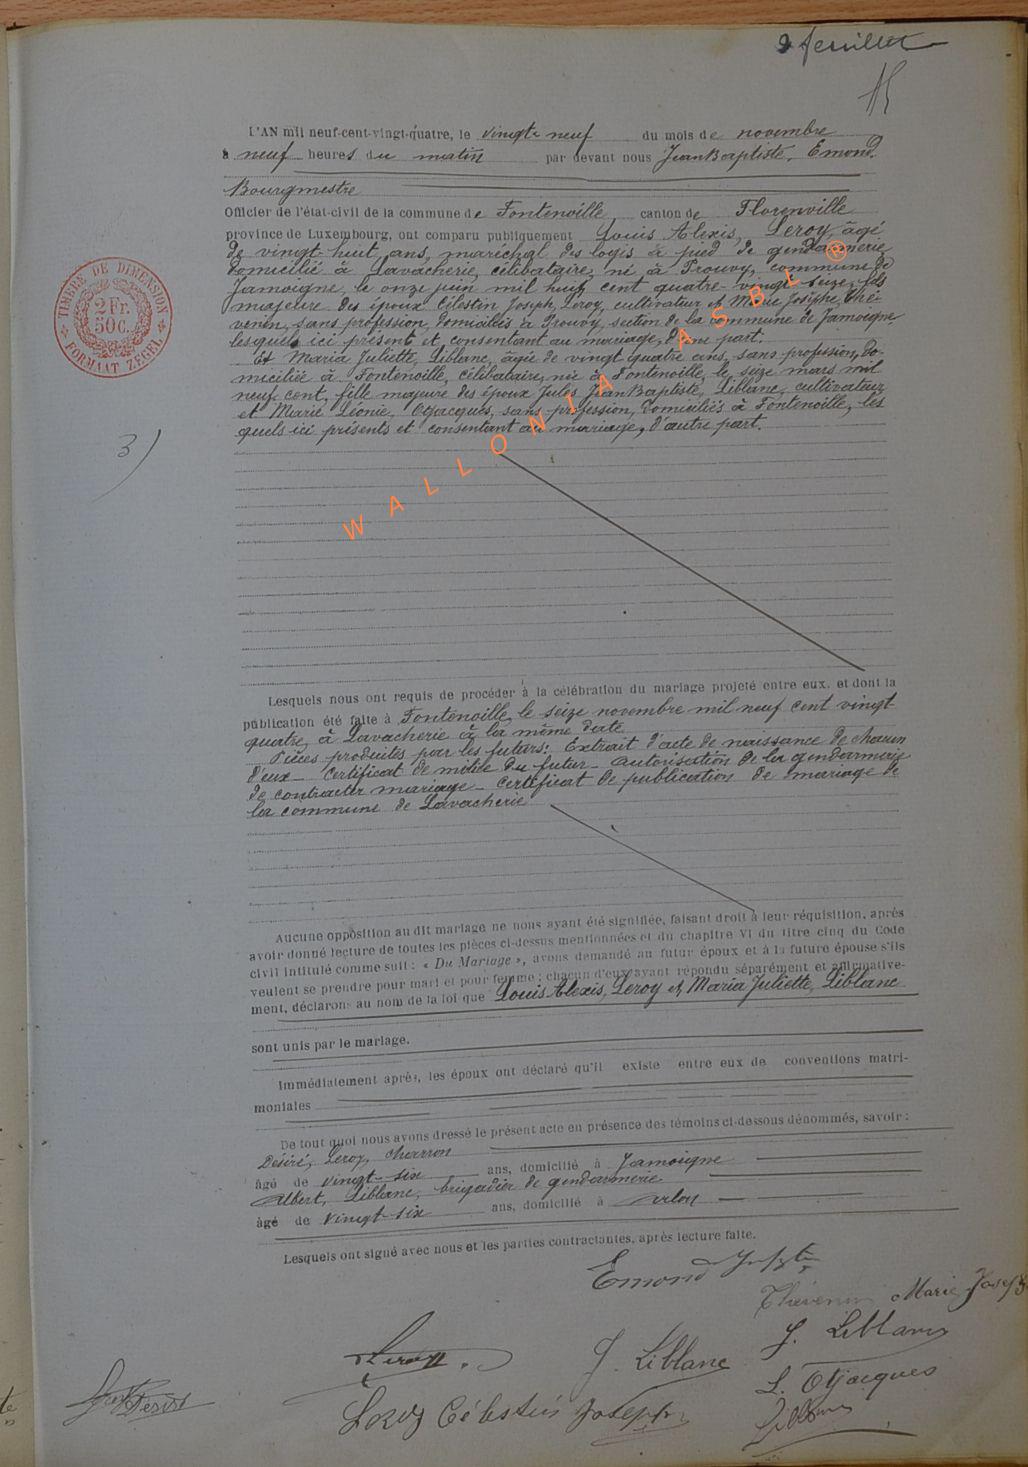 9 feuillet
L'AN mil neuf-cent-vingt-quatre, le vingt-neuf du mois de novembre
à neuf heures du matin par devant nous Jean Baptiste, Emond,
Bourgmestre
Officier de l'état-civil de la commune de Fontenoille, canton de Florenville
province de Luxembourg, ont comparu publiquement Louis Alexis, Leroy, âgé
de vingt-huit ans, maréchal des logis à pied de gendarmerie
domicilié à Lavacherie, célibataire, né à Prouvy, commune de
Jamoigne, le onze juin mil huit cent quatre-vingt-seize, fils
majeure des époux Célestin Joseph, Leroy, cultivateur et Marie Josèphe, Thé-
venin, sans profession, domiciliés à Prouvy, section de la commune de Jamoigne,
lesquels ici présent et consentant au mariage, d'une part.
Et Maria Juliette, Liblanc, âgée de vingt quatre ans, sans profession, do-
miciliée à Fontenoille, célibataire, née à Fontenoille, le seize mars mil
neuf cent, fille majeure des époux Jules Jean Baptiste, Liblanc, cultivateur
et Marie Léonie, Otjacques, sans profession, domiciliés à Fontenoille, les
quels ici présents et consentant au mariage, d'autre part.
3)
TIMBRE DE DIMENSION
2 Fr.
50 C.
FORMAAT ZEGEL
WALLONIA ASBL ®
Lesquels nous ont requis de procéder à la célébration du mariage projeté entre eux, et dont la
publication été faite à Fontenoille, le seize novembre mil neuf cent vingt
quatre, à Lavacherie à la même date
Pièces produites par les futurs: Extrait d'acte de naissance de chacun
d'eux - Certificat de milice du futur - autorisation de la gendarmerie
de contracter mariage - Certificat de publication de mariage de
la commune de Lavacherie
Aucune opposition au dit mariage ne nous ayant été signifiée, faisant droit à leur réquisition, après
avoir donné lecture de toutes les pièces ci-dessus mentionnées et du chapitre VI du titre cinq du Code
civil intitulé comme suit: « Du Mariage », avons demandé au futur époux et à la future épouse s'ils
veulent se prendre pour mari et pour femme; chacun d'eux ayant répondu séparément et affirmative-
ment, déclarons au nom de la loi que Louis Alexis, Leroy et Maria Juliette, Liblanc
sont unis par le mariage.
Immédiatement après, les époux ont déclaré qu'il existe entre eux de conventions matri-
moniales
De tout quoi nous avons dressé le présent acte en présence des témoins ci-dessous dénommés, savoir:
Désiré, Leroy, charron
âgé de vingt-six ans, domicilié à Jamoigne
Albert, Liblanc, brigadier de gendarmerie
âgé de vingt-six ans, domicilié à Arlon
Lesquels ont signé avec nous et les parties contractantes, après lecture faite.
Emond
Thévenin Marie Josèph
Leroy J. Liblanc J. Liblanc
L. Otjacques
Leroy Célestin Joseph
Liblanc